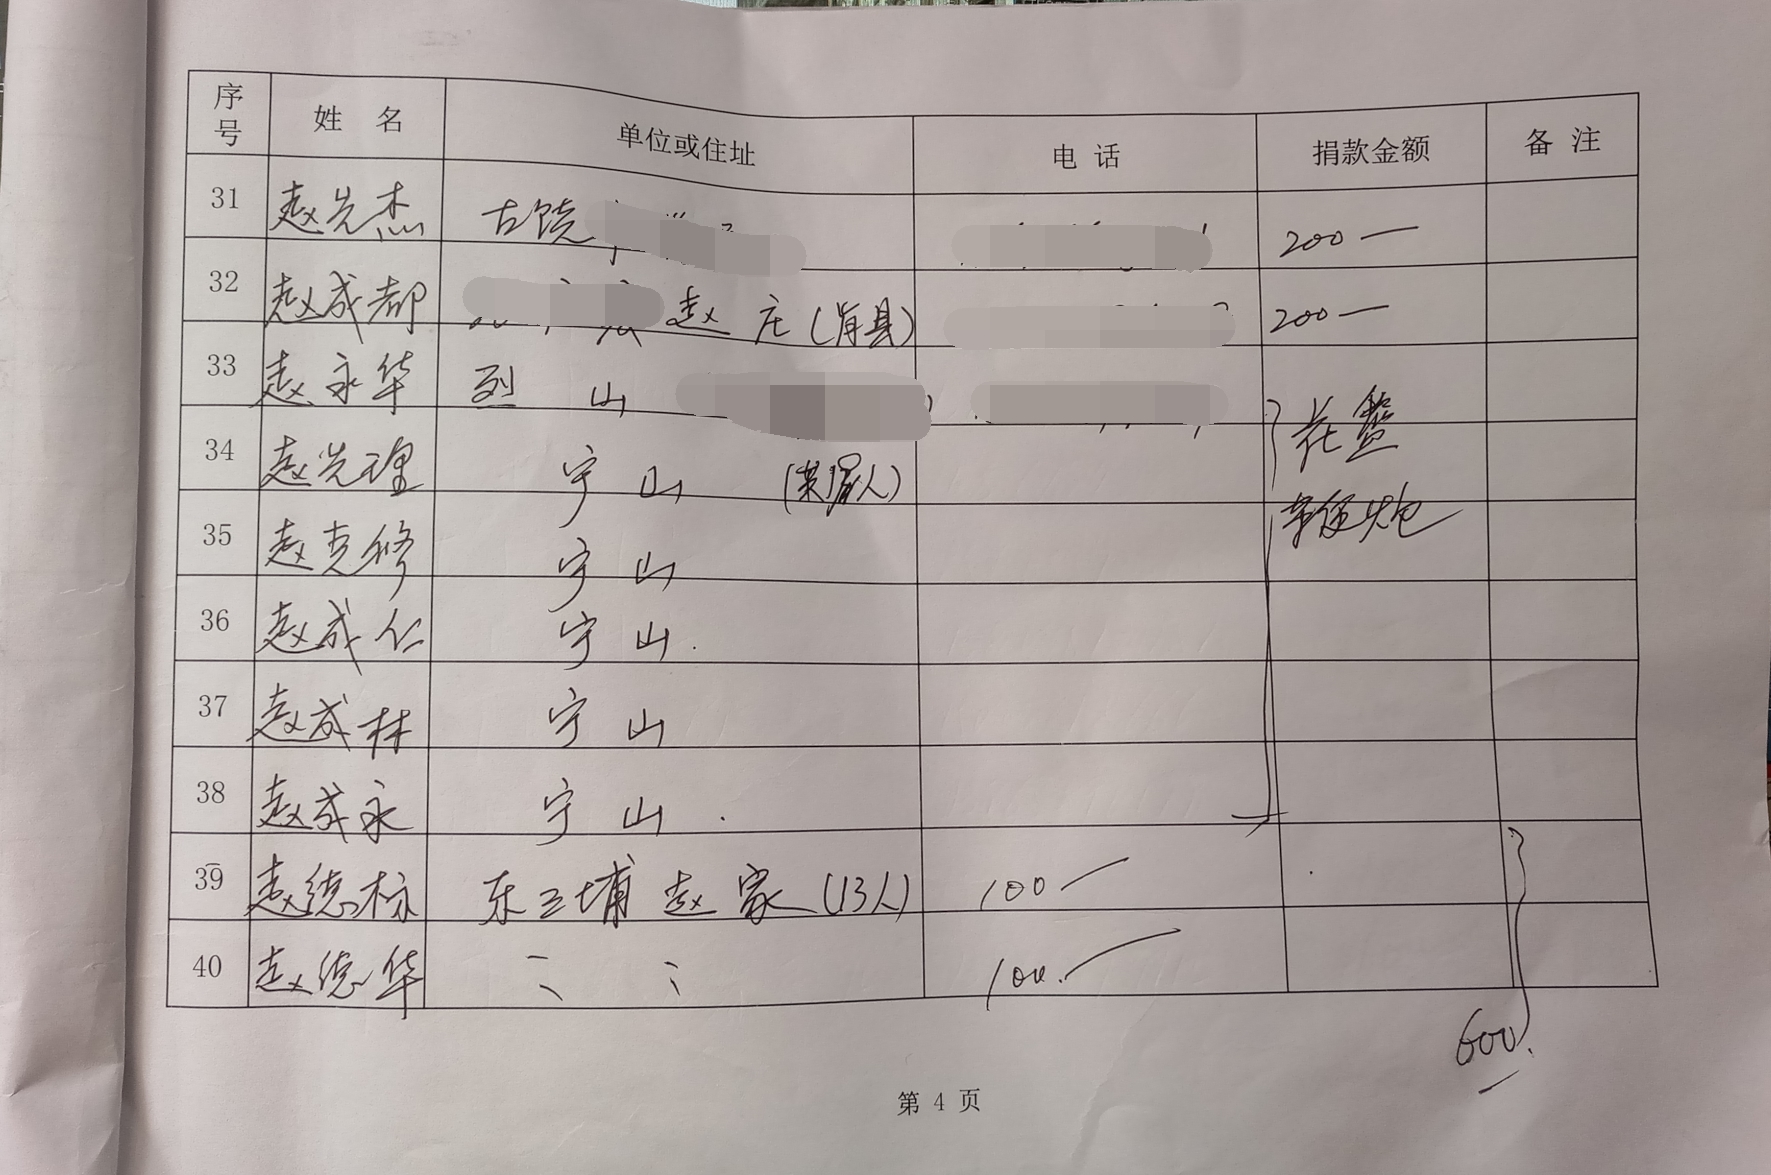 序号 姓 名 单位或住址 电 话 捐款金额 备 注
31 赵先杰 古饶 200一
32 赵成都 赵庄(肖县) 200一
33 赵永华 烈山 花篮
34 赵先理 宁山
35 赵克修 宁山
36 赵成仁 宁山.
37 赵成林 宁山
38 赵成永 宁山.
39 赵德标 东三埔赵家(13人) 100一
40 赵德华 100.
600.
第 4 页